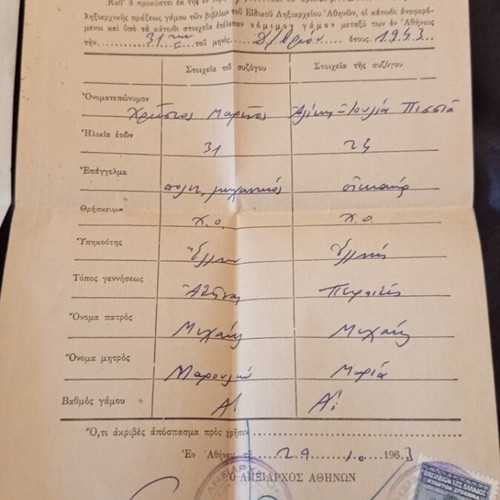 Καθ' ἃ προκύπτει ἐκ τῆς
ληξιαρχικῆς πράξεως γάμου τῶν βιβλίων τοῦ Εἰδικοῦ Ληξιαρχείου Ἀθηνῶν, οἱ κάτωθι ἀναφερό-
μενοι καὶ ὑπὸ τὰ κάτωθι στοιχεῖα ἐτέλεσαν νόμιμον γάμον μεταξύ των ἐν Ἀθήναις
τὴν 31 τοῦ μηνὸς ἔτους 1943
Στοιχεῖα τοῦ συζύγου Στοιχεῖα τῆς συζύγου
Ὀνοματεπώνυμον Χρῆστος Μαρῖνος Ἀλίκη-Ἰουλία Πισσιᾶ
Ἡλικία ἐτῶν 31 24
Ἐπάγγελμα πολιτ. μηχανικός οἰκιακά
Θρήσκευμα Χ.Ο. Χ.Ο.
Ὑπηκοότης Ἕλλην Ἑλληνίς
Τόπος γεννήσεως Ἀθῆναι Πειραιεύς
Ὄνομα πατρὸς Μιχαήλ Μιχαήλ
Ὄνομα μητρὸς Μαρία
Βαθμὸς γάμου Α' Α'
Ὅ,τι ἀκριβὲς ἀπόσπασμα πρὸς χρῆσιν
Ἐν Ἀθήναις τῇ 29 196
Ο ΛΗΞΙΑΡΧΟΣ ΑΘΗΝΩΝ